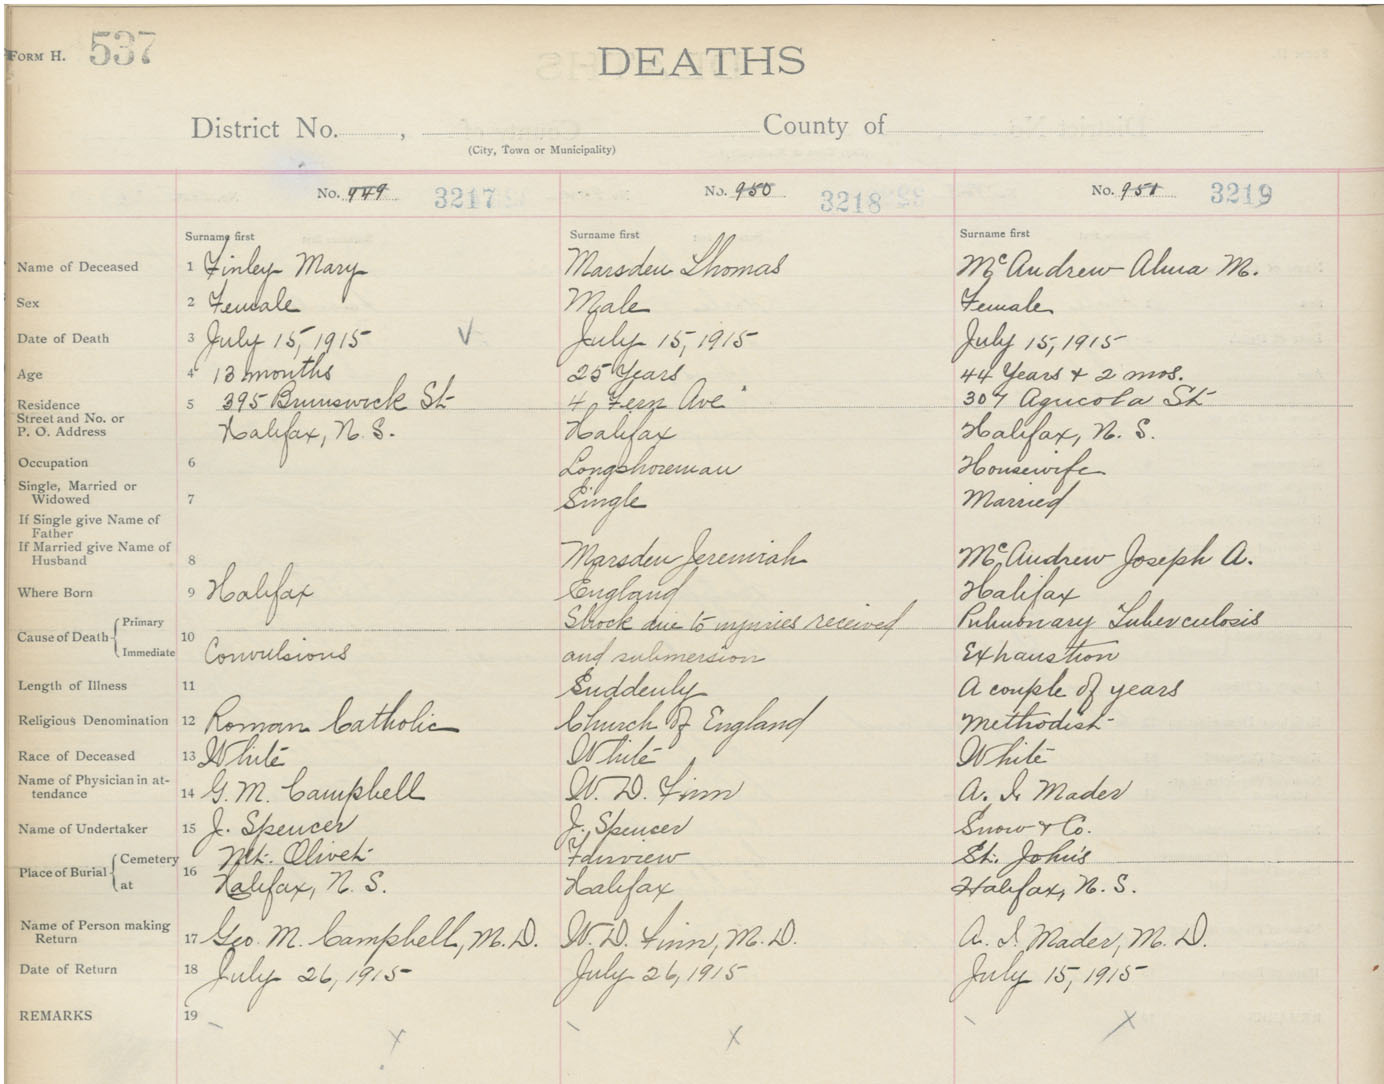 FORM H. 537
DEATHS
District No. , County of
(City, Town or Municipality)
No. 949 3217 No. 950 3218 No. 951 3219
Surname first Surname first Surname first
Name of Deceased 1 Finley Mary Marsden Thomas McAndrew Alma M.
Sex 2 Female Male Female
Date of Death 3 July 15, 1915 July 15, 1915 July 15, 1915
Age 4 13 months 25 Years 44 Years + 2 mos.
Residence 5 395 Brunswick St 4 Fern Ave 307 Agricola St
Street and No. or
P. O. Address Halifax, N. S. Halifax Halifax, N. S.
Occupation 6 Longshoreman Housewife
Single, Married or
Widowed 7 Single Married
If Single give Name of
Father
If Married give Name of
Husband 8 Marsden Jeremiah McAndrew Joseph A.
Where Born 9 Halifax England Halifax
Cause of Death Primary 10 Shock due to injuries received Pulmonary Tuberculosis
Immediate Convulsions and submersion Exhaustion
Length of Illness 11 Suddenly A couple of years
Religious Denomination 12 Roman Catholic Church of England Methodist
Race of Deceased 13 White White White
Name of Physician in at-
tendance 14 G. M. Campbell W. D. Finn A. I. Mader
Name of Undertaker 15 J. Spencer J. Spencer Snow & Co.
Place of Burial Cemetery 16 Mt. Olivet Fairview St. John's
at Halifax, N. S. Halifax Halifax, N. S.
Name of Person making
Return 17 Geo. M. Campbell, M. D. W. D. Finn, M. D. A. I. Mader, M. D.
Date of Return 18 July 26, 1915 July 26, 1915 July 15, 1915
REMARKS 19